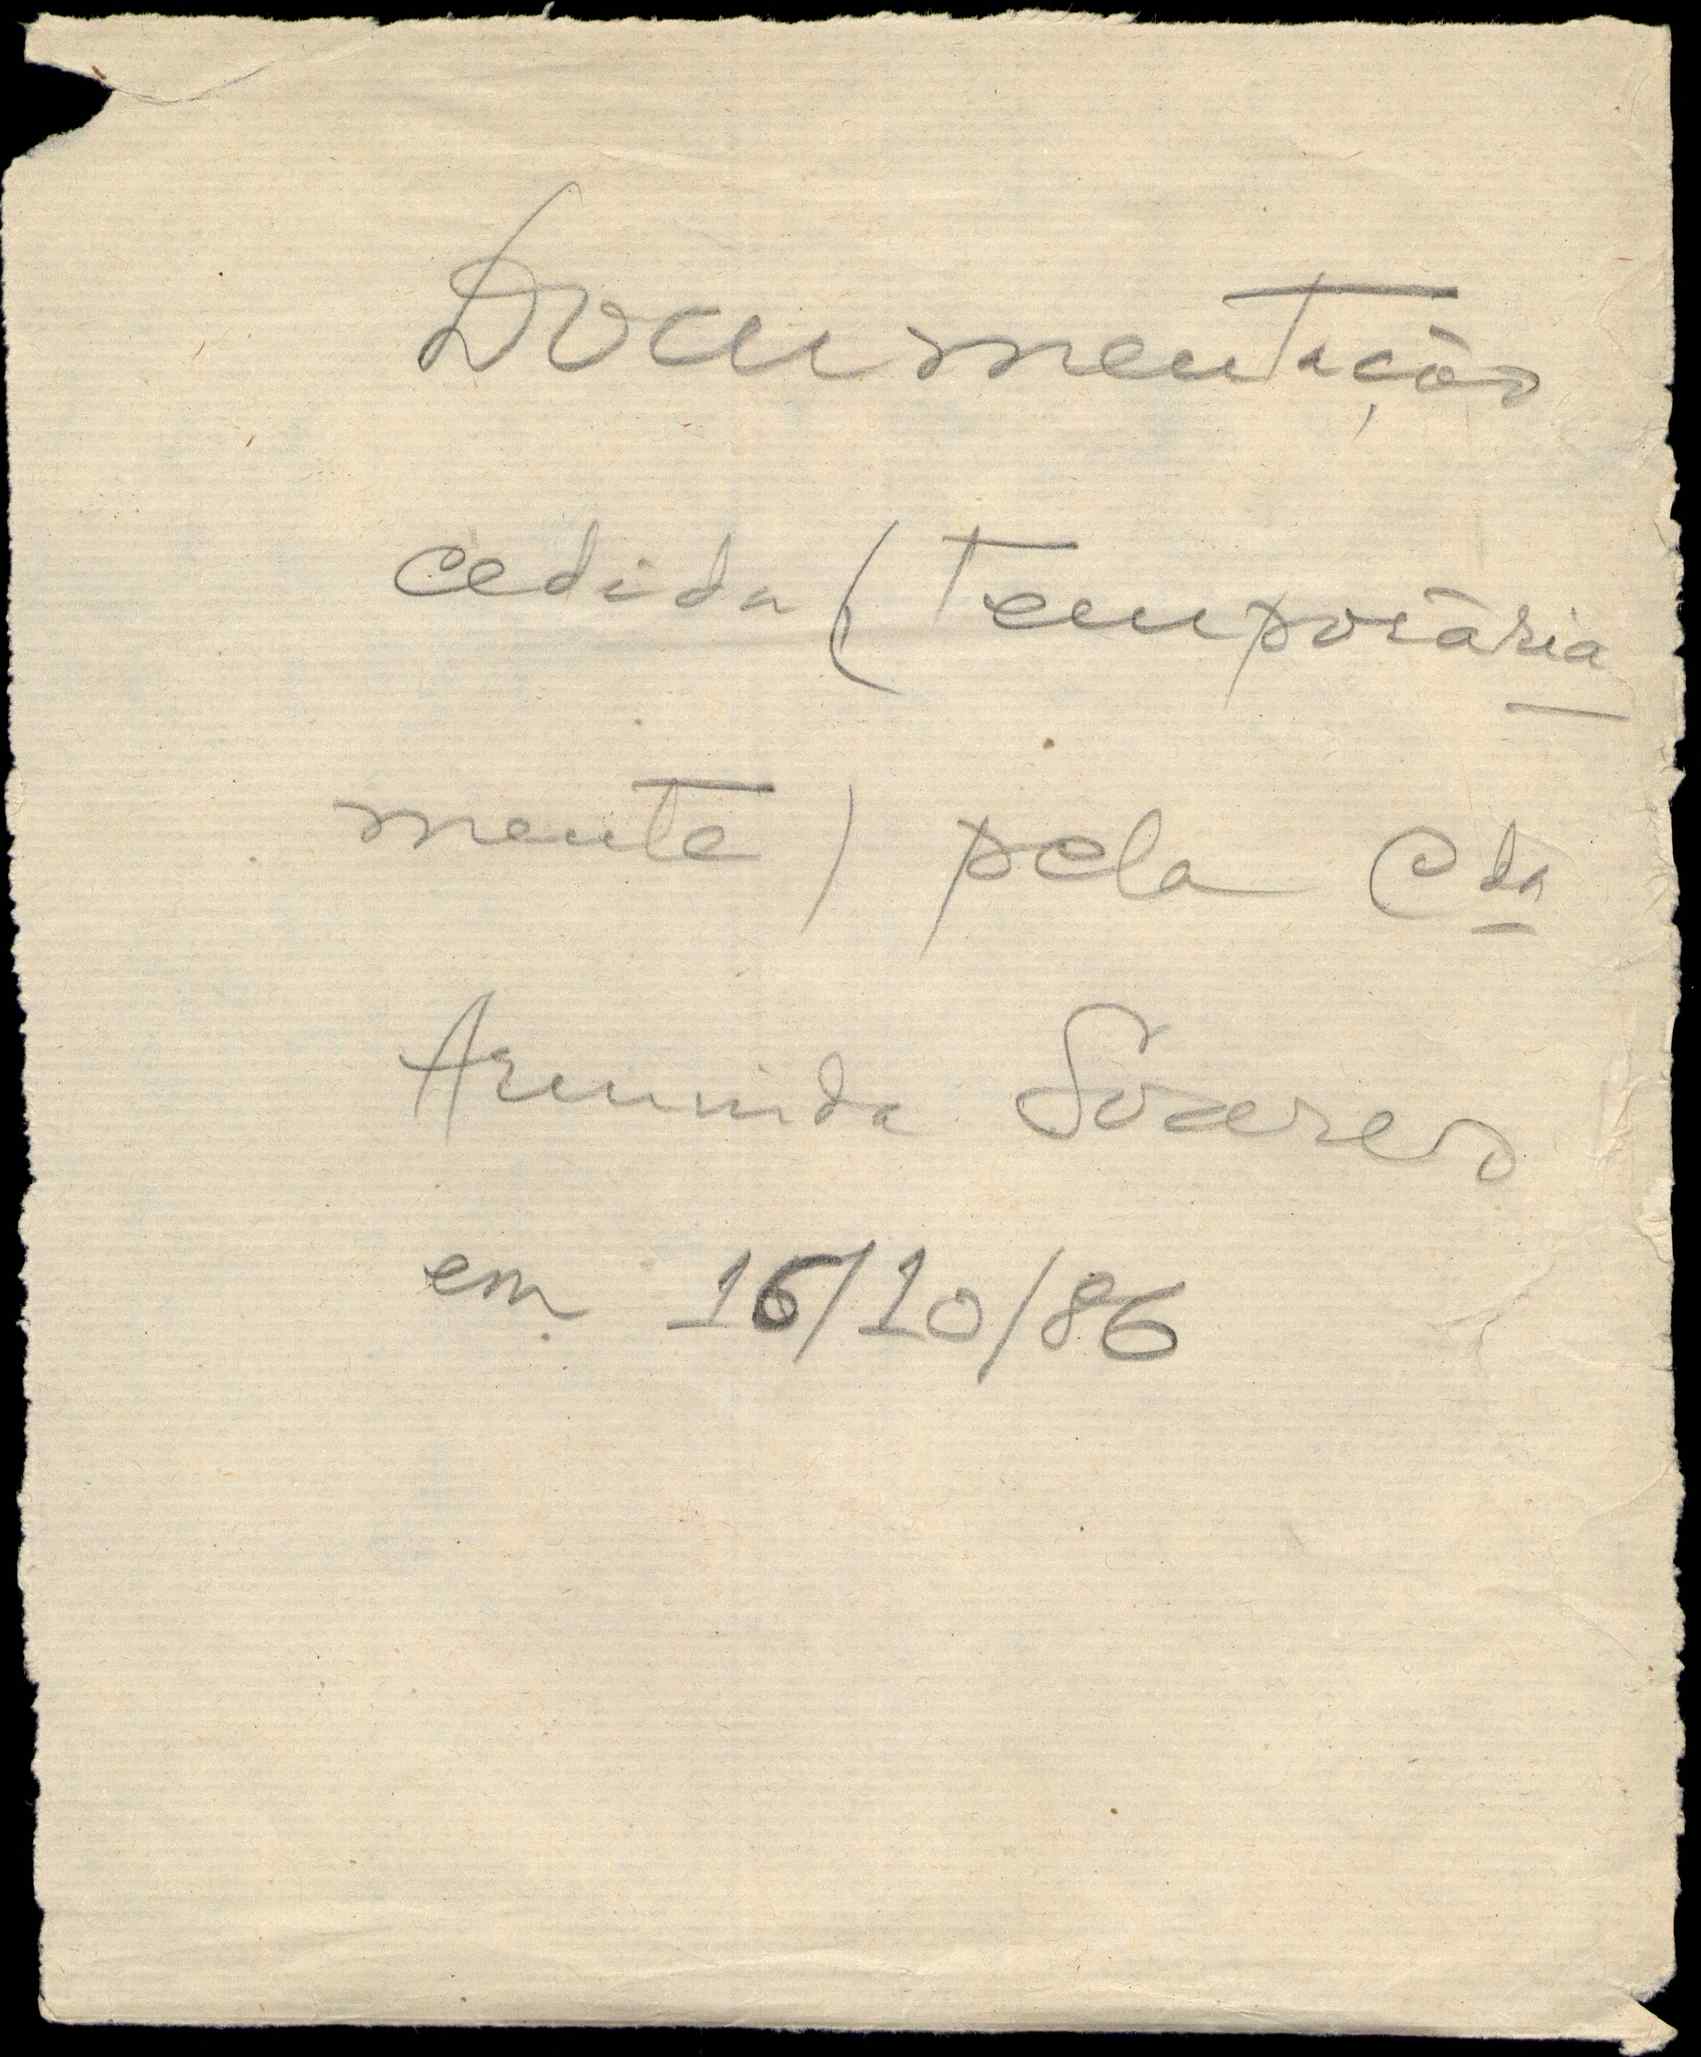 Documentação
cedida (temporária
mente) pela Cda
Arminda Soares
em 16/10/86